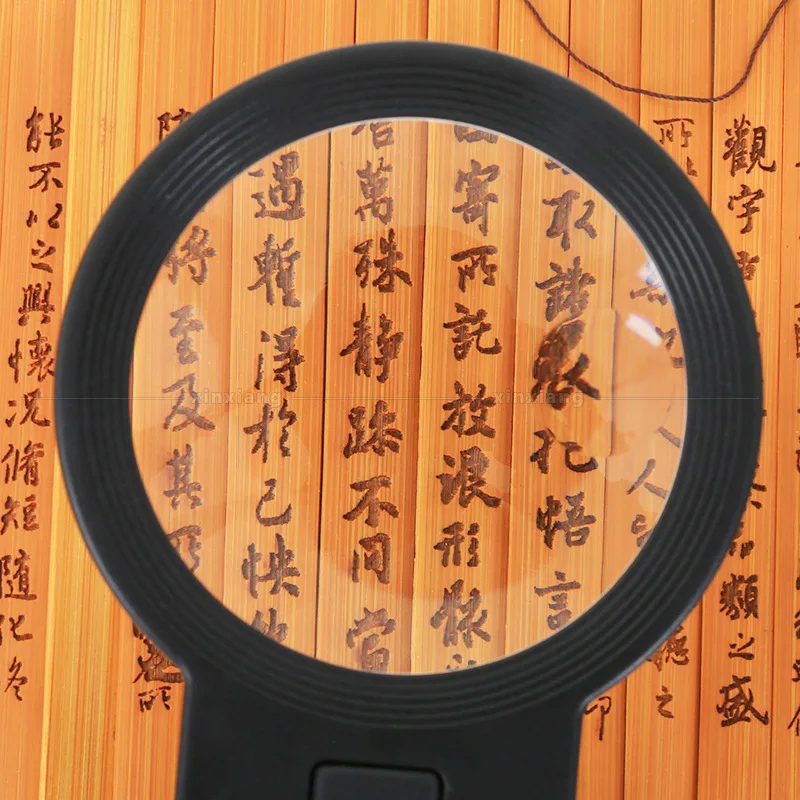 觀宇
類之盛
所
聽之
人
取諸懷抱悟言
寄所託放浪形骸
萬殊靜躁不同當
遇暫得於己怏
將至及其所
能不以之興懷況脩短隨化
xinxiang xinxiang